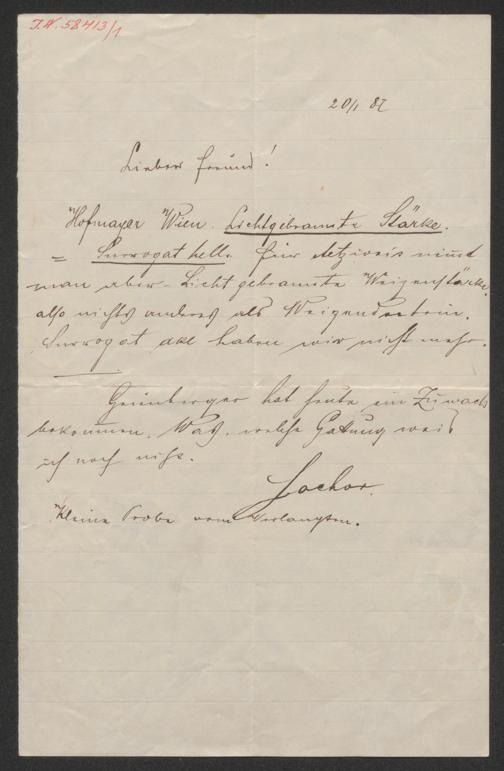 I.N. 58413/1
20/1 87
Lieber Freund!
Hofmayer Wien. Lichtgebrannte Stärke.
= Surrogat hell. Für nimmt
man aber Licht gebrannte Weizenstärke,
also nichts anderes als Weizendextrin.
Surrogat haben wir nicht mehr.
Grünberger hat heute ein Zuwachs
bekommen. Was, welche Gattung weis
ich noch nicht.
Lochor.
Kleine Probe vom Verlangten.